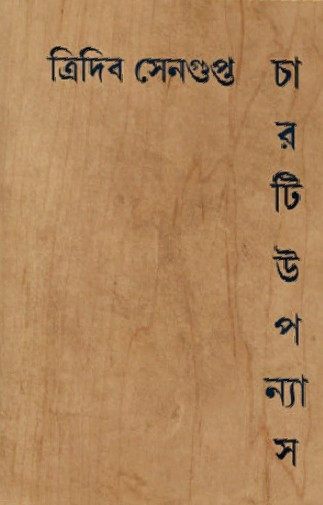 ত্রিদিব সেনগুপ্ত
চারটি উপন্যাস